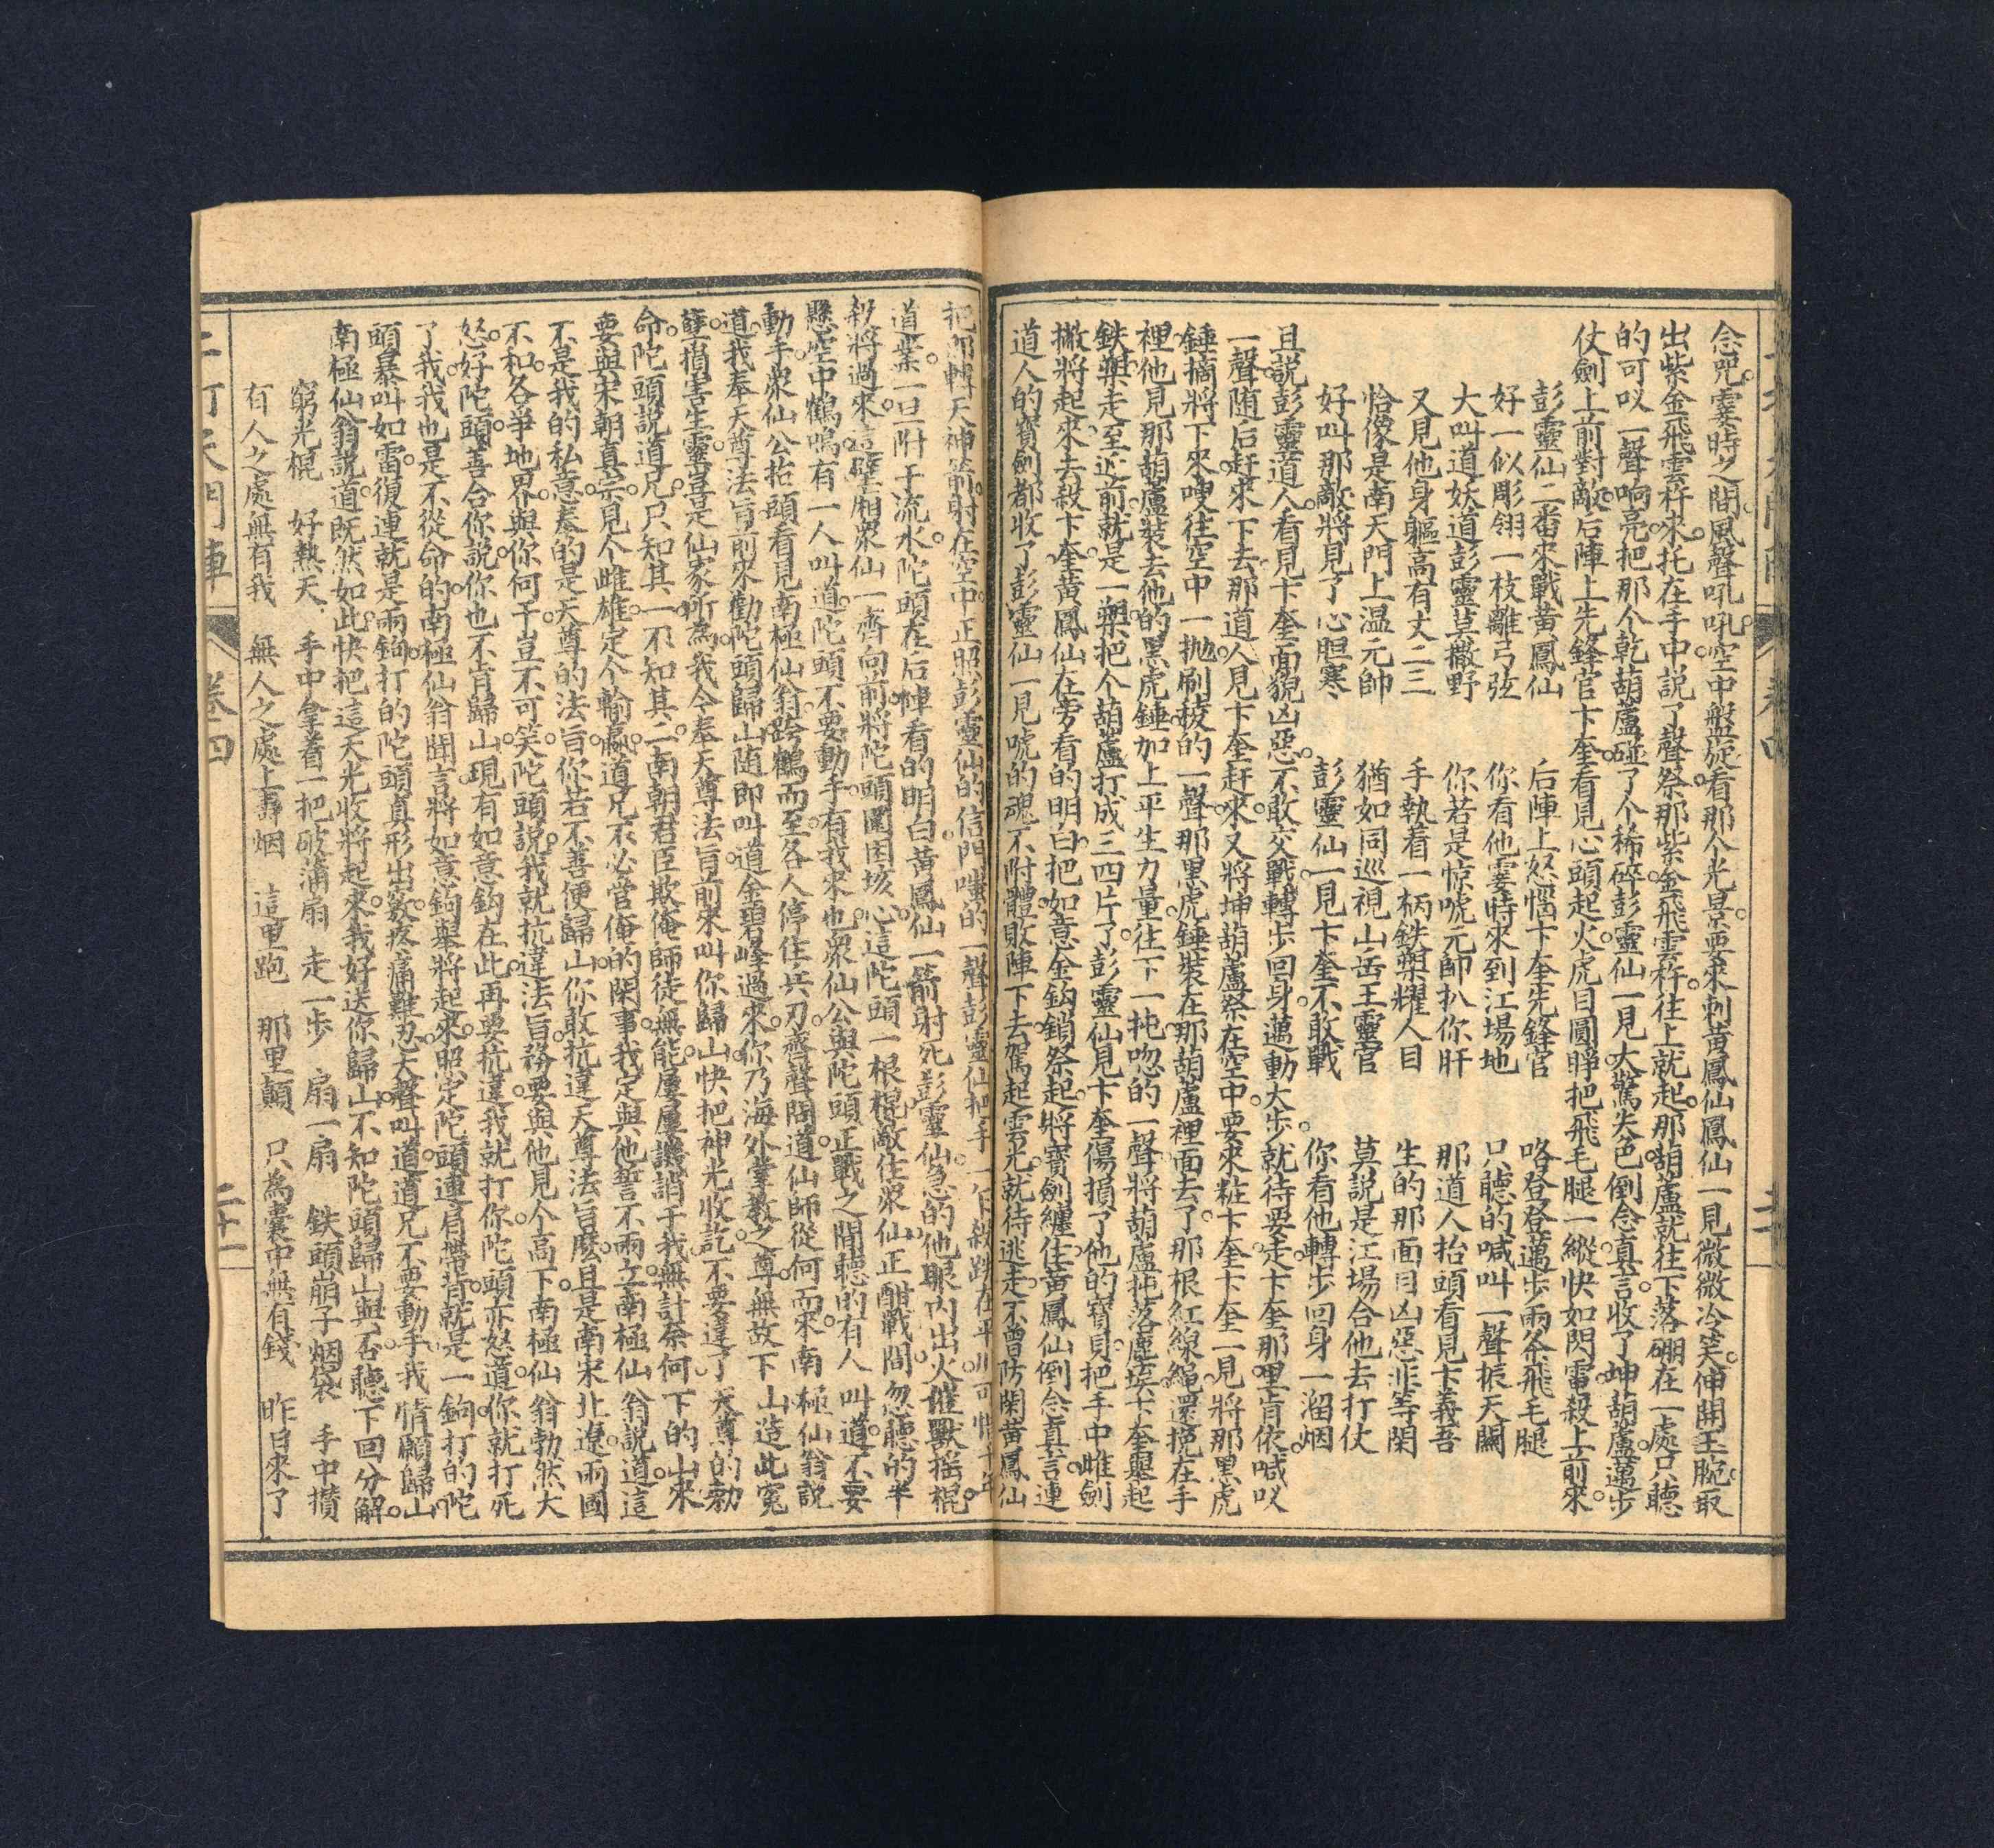 念咒。霎時之間。風聲吼吼。空中盤旋。看那个光景。要來刺黃鳳仙。鳳仙一見。微微冷笑。伸開玉腕。取
出紫金飛雲杵來。托在手中。說了聲祭。那紫金飛雲杵。往上就起。那葫蘆就往下落。硼在一處。只聽
的可叹一聲响亮。把那个乾葫蘆。碰了个稀碎。彭靈仙一見。大驚失色。倒念真言。收了坤葫蘆。邁步
仗劍上前對敵。后陣上先鋒官卞奎看見。心頭起火。虎目圓睜。把飛毛腿一縱。快如閃電。殺上前來。
彭靈仙二番來戰黃鳳仙 后陣上怒惱卞奎先鋒官 咯登登邁步兩条飛毛腿
好一似彫翎一枝離弓弦 你看他霎時來到江場地 只聽的喊叫一聲振天關
大叫道妖道彭靈莫撒野 你若是惊唬元帥扒你肝 那道人抬頭看見卞義吾
又見他身軀高有丈二三 手執着一柄鉄槊耀人目 生的那面目凶惡非等閑
恰像是南天門上温元帥 猶如同巡視山岳王靈官 莫說是江場合他去打仗
好叫那敵將見了心胆寒 彭靈仙一見卞奎不敢戰 你看他轉步回身一溜烟
且說彭靈道人。看見卞奎面貌凶惡。不敢交戰。轉步回身。邁動大步。就待要走。卞奎那里肯依。喊叹
一聲。随后赶來下去。那道人見卞奎赶來。又將坤葫蘆。祭在空中。要來粧卞奎。卞奎一見。將那黑虎
錘摘將下來。嗖往空中一抛。刷拔的一聲。那黑虎錘裝在那葫蘆裡面去了。那根紅線䋲還挽在手
裡。他見那葫蘆裝去他的黑虎錘。加上平生力量。往下一扽。唿的一聲。將葫蘆扽落塵埃。卞奎舉起
鉄槊。走至近前。就是一槊。把个葫蘆打成三四片了。彭靈仙見卞奎傷損了他的寶貝。把手中雌劍
撒將起來。去殺卞奎。黃鳳仙在旁看的明白。把如意金鈎鎖祭起。將寶劍纏住。黃鳳仙倒念真言。連
道人的寶劍都收了。彭靈仙一見。唬的魂不附體。敗陣下去。駕起雲光。就待逃走。不曾防閑。黃鳳仙
把那轉天神箭。射在空中。正照彭靈仙的信門。嗤的一聲。彭靈仙把手一乍。殺跌在平川。可惜千年
道業。一旦附于流水。陀頭在后陣看的明白。黃鳳仙一箭射死彭靈仙。急的他眼内出火。催獸摇棍。
殺將過來。這壁廂衆仙一齊向前。將陀頭圍困垓心。這陀頭一根棍敵住衆仙。正酣戰間。忽聽的半
懸空中鶴鳴。有一人叫道。陀頭不要動手。有我來也。衆仙公與陀頭正戰之間。聽的有人叫道。不要
動手。衆仙公抬頭看見南極仙翁。跨鶴而至。各人停住兵刃。齊聲問道。仙師從何而來。南極仙翁說
道。我奉天尊法旨。前來勸陀頭歸山。随即叫道。金碧峰過來。你乃海外掌教之尊。無故下山。造此寃
孽。損害生靈。豈是仙家所為。我今奉天尊法旨。前來叫你歸山。快把神光收訖。不要違了天尊的勅
命。陀頭說。道兄只知其一。不知其二。南朝君臣。欺俺師徒無能。屢屢譏誚于我。無計奈何下的山來。
要與宋朝真宗見个雌雄。定个輸贏。道兄不必管俺的閑事。我定與他誓不兩立。南極仙翁說道。這
不是我的私意。奏的是天尊的法旨。你若不善便歸山。你敢抗違天尊法旨麽。且是南宋北遼。兩國
不和。各爭地界。與你何干。豈不可笑。陀頭說。我就抗違法旨。務要與他見个高下。南極仙翁勃然大
怒。好陀頭。善合你說。你也不肯歸山。現有如意鈎在此。再要抗違。我就打你。陀頭亦怒。道。你就打死
了我。我也是不從命的。南極仙翁聞言。將如意鈎舉將起來。照定陀頭連肩帶背。就是一鈎。打的陀
頭暴叫如雷。復連就是兩鈎。打的陀頭真形出竅。疼痛難忍。大聲叫道。道兄不要動手。我情願歸山。
南極仙翁說道。既然如此。快把這天光收將起來。我好送你歸山。不知陀頭歸山與否。聽下回分解。
窮光棍 好熱天 手中拿着一把破蒲扇 走一步 扇一扇 鉄頭崩子烟袋 手中攢
有人之處無有我 無人之處上壽烟 這里跑 那里顛 只為囊中無有錢 昨日來了
二打天門陣 卷四 二十一